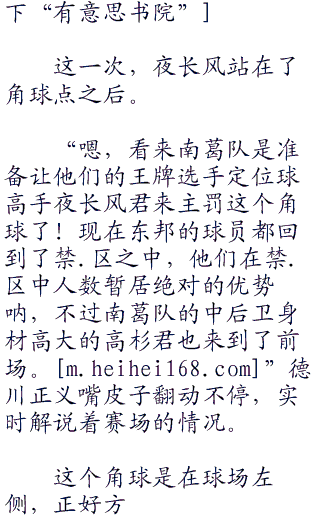 下“有意思书院”]
这一次，夜长风站在了
角球点之后。
“嗯，看来南葛队是准
备让他们的王牌选手定位球
高手夜长风君来主罚这个角
球了！现在东邦的球员都回
到了禁.区之中，他们在禁.
区中人数暂居绝对的优势
呐，不过南葛队的中后卫身
材高大的高杉君也来到了前
场。[m.heihei168.com]”德
川正义嘴皮子翻动不停，实
时解说着赛场的情况。
这个角球是在球场左
侧，正好方